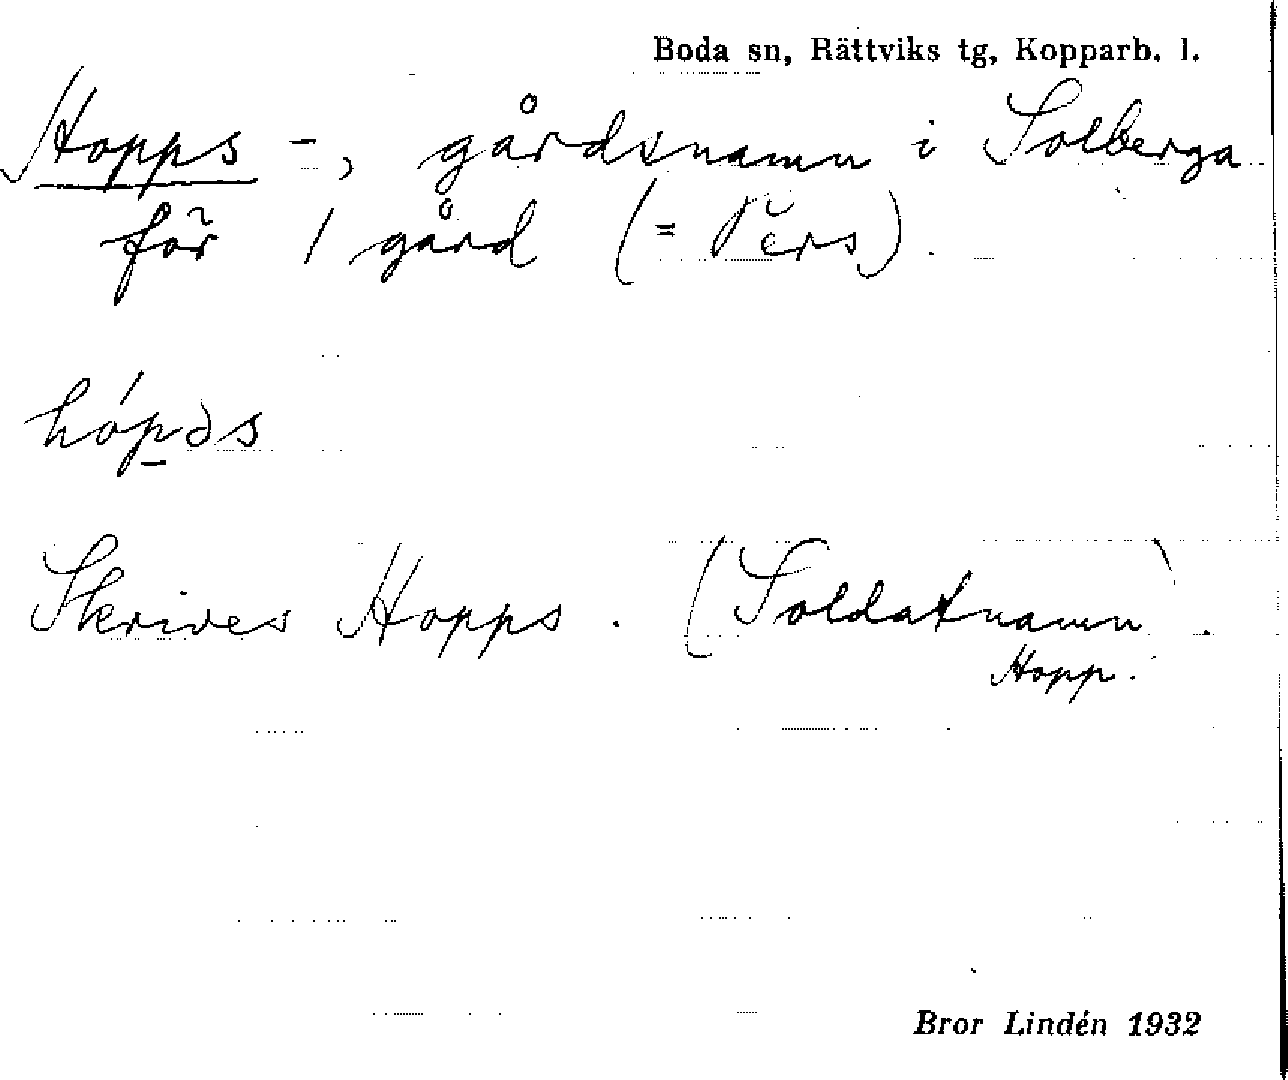 Boda sn, Rättviks tg, Kopparb. l.
Hopps -, gårdsnamn i Solberga
för 1 gård (= Pers).
hópəs
Skrives Hopps. (Soldatnamn).
Hopp.
Bror Lindén 1932